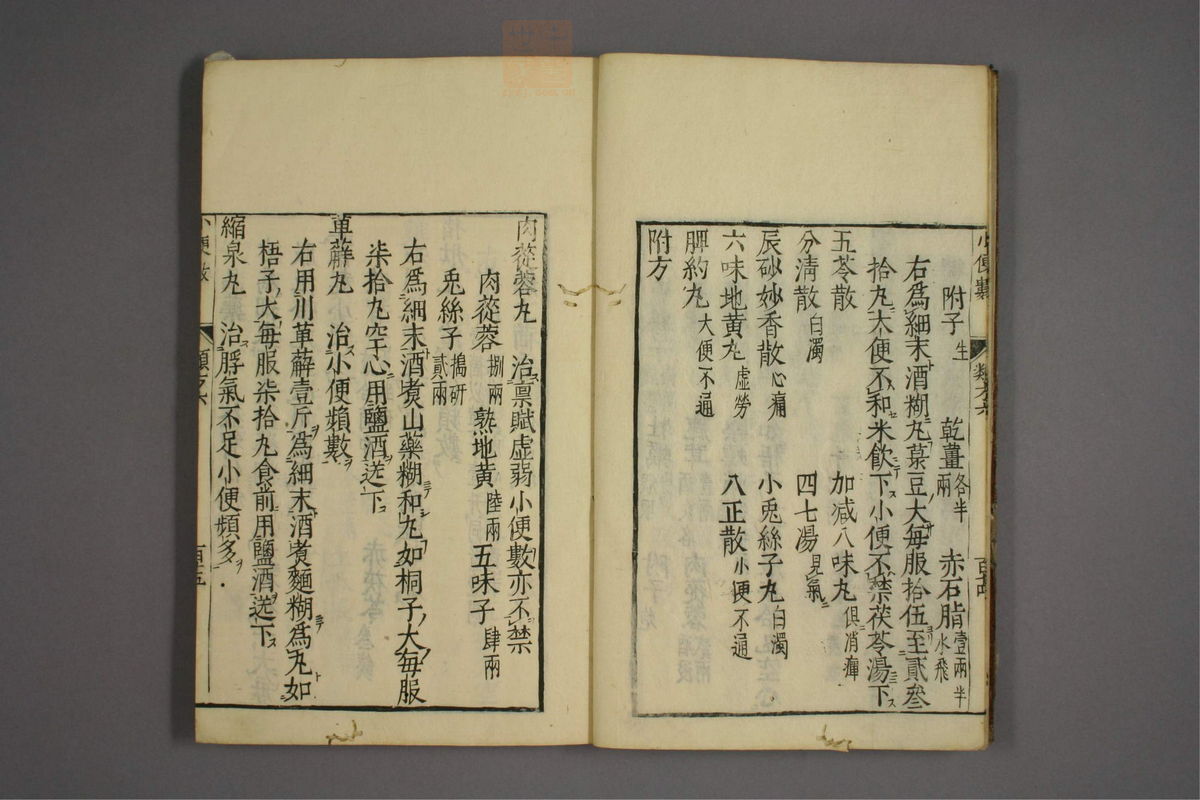 小便數
類方六
附子 生 乾薑 各半兩 赤石脂 壹兩半 水飛
右爲細末酒糊丸菉豆大每服拾伍至貳叁
拾丸大便不和米飮下小便不禁茯苓湯下
五苓散 加减八味丸 俱消癉
分淸散 白濁 四七湯 見氣
辰砂妙香散 心痛 小兎絲子丸 白濁
六味地黃丸 虛勞 八正散 小便不通
脾約丸 大便不通
附方
肉蓯蓉丸 治禀賦虛弱小便數亦不禁
肉蓯蓉 捌兩 熟地黃 陸兩 五味子 肆兩
兎絲子 搗研貳兩
右爲細末酒煑山藥糊和丸如桐子大每服
柒拾丸空心用鹽酒送下
萆薢丸 治小便頻數
右用川萆薢壹斤爲細末酒煑麵糊爲丸如
梧子大每服柒拾丸食前用鹽酒送下
縮泉丸 治脬氣不足小便頻多
小便數
類方六
百五